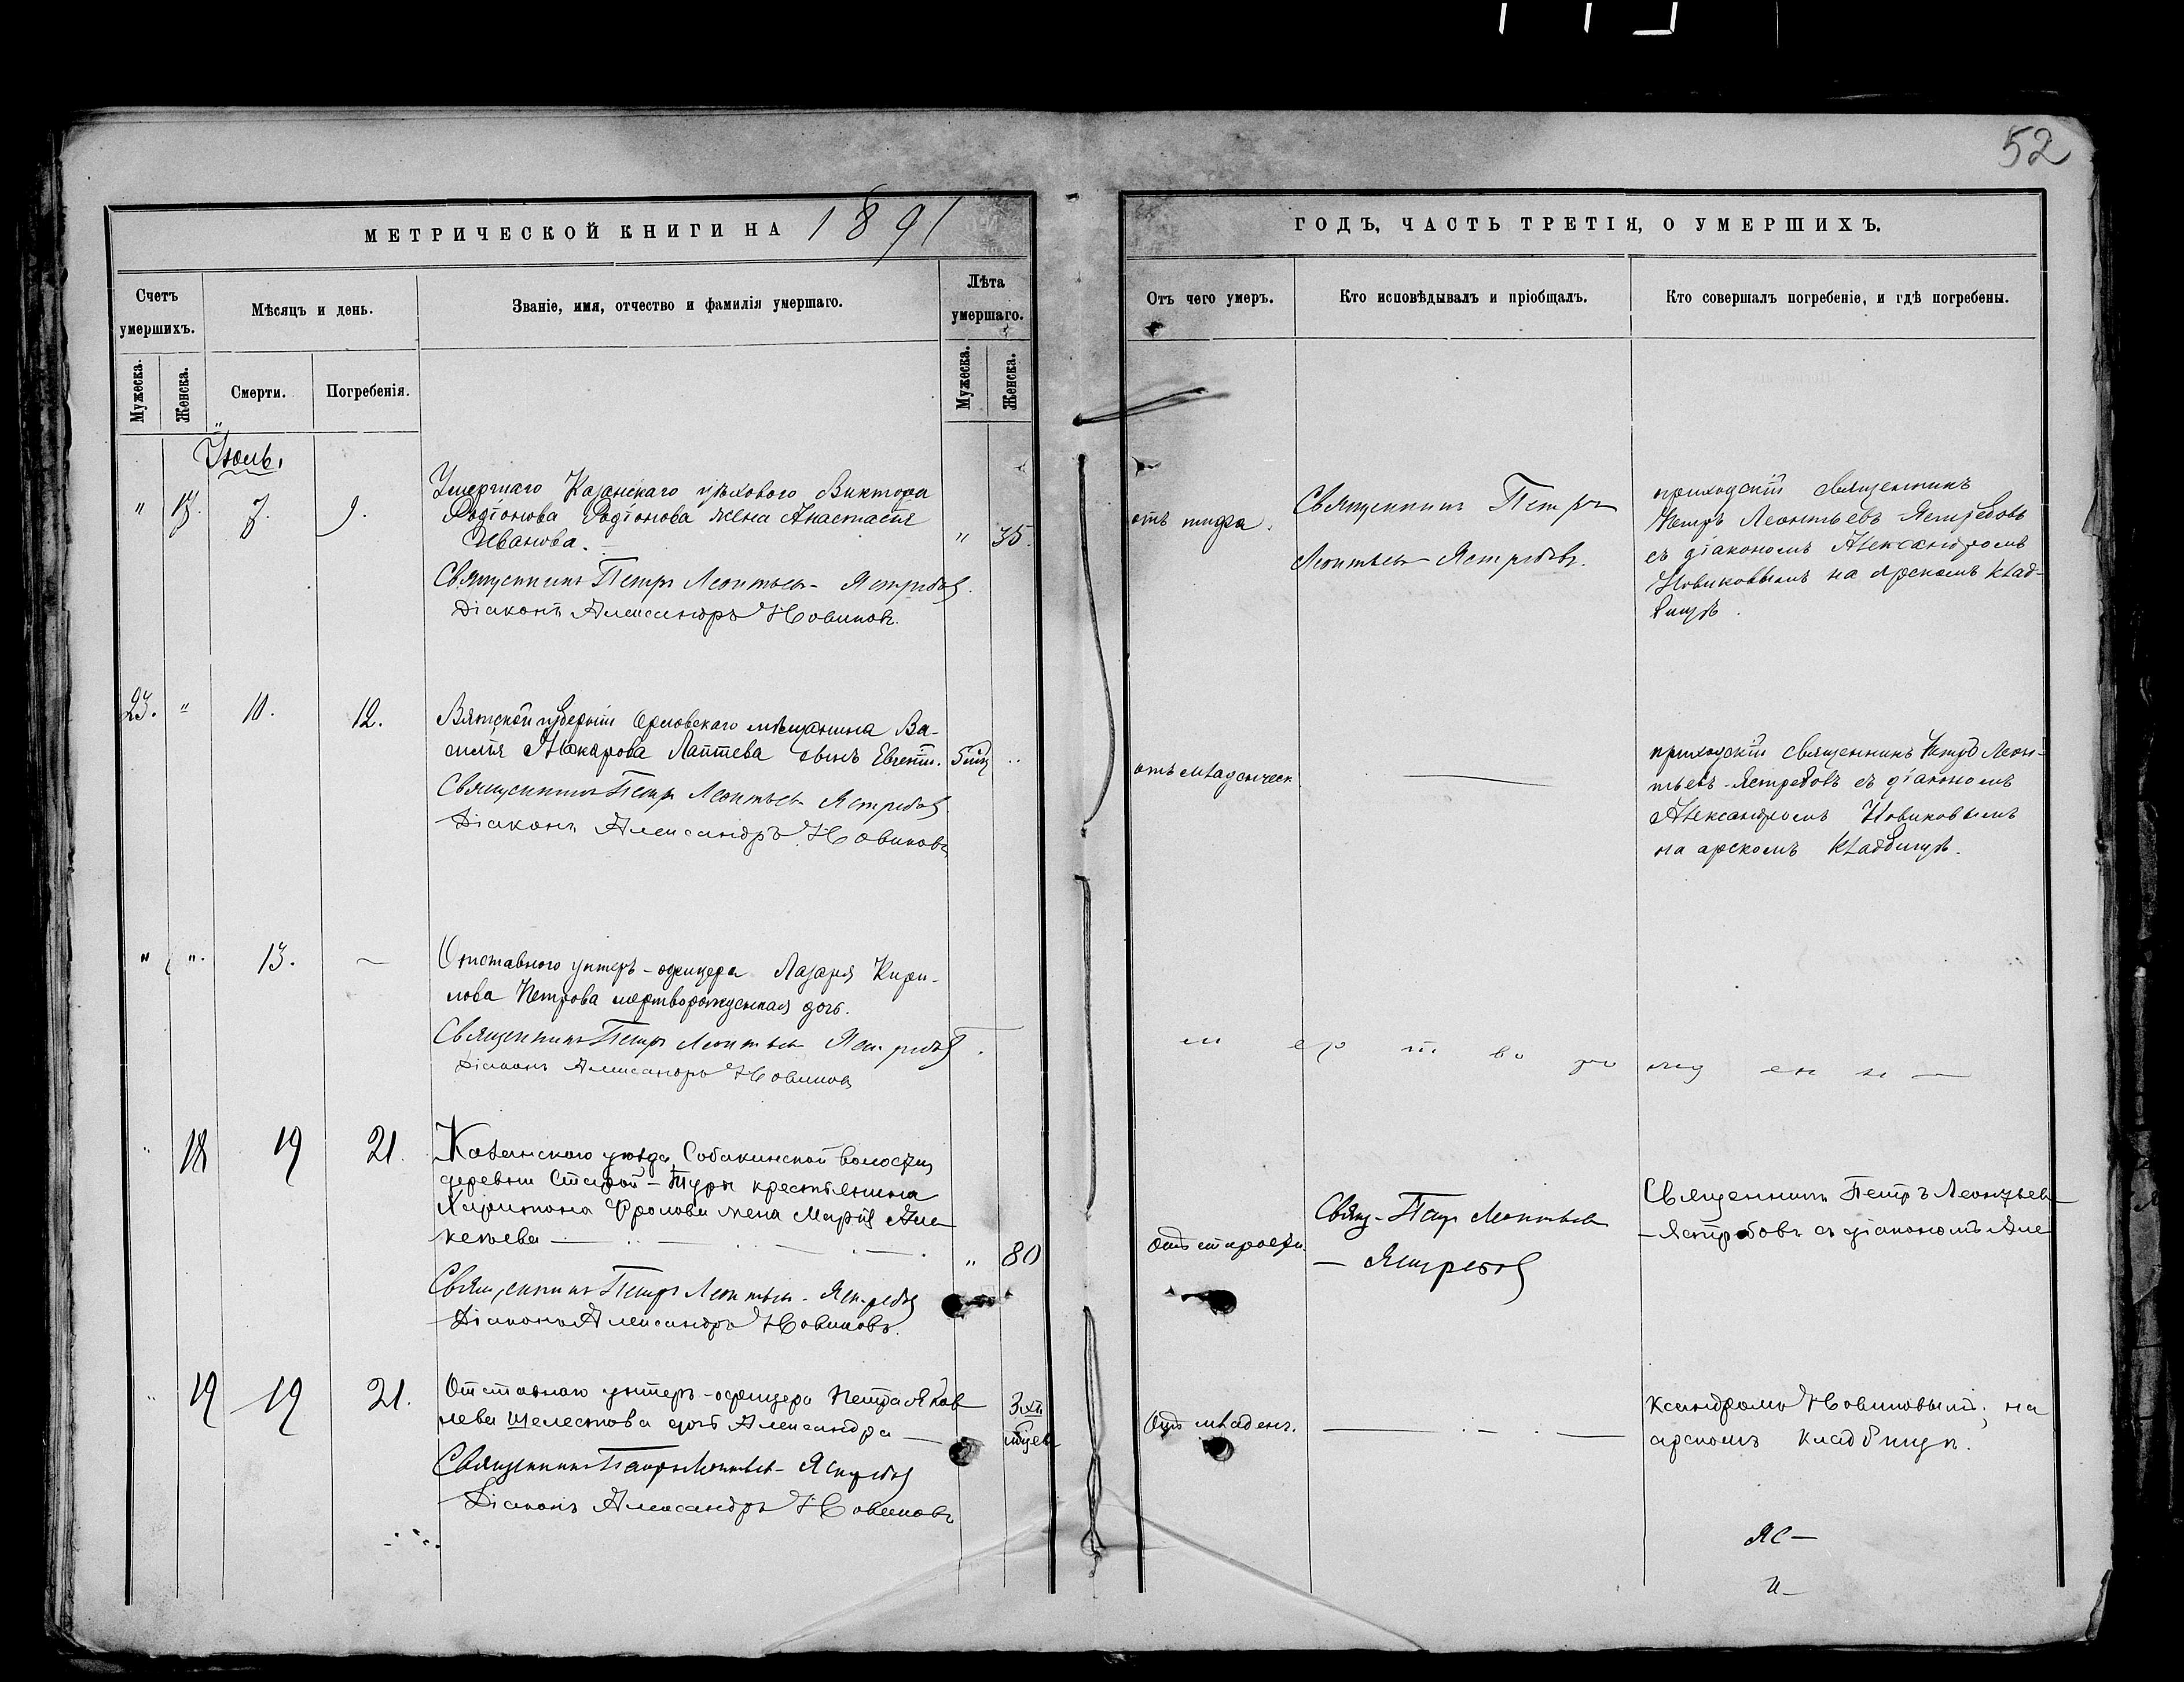 52
МЕТРИЧЕСКОЙ КНИГИ НА 1891
ГОДЪ, ЧАСТЬ ТРЕТІЯ, О УМЕРШИХЪ.
Счетъ умершихъ.
Мѣсяцъ и день.
Званіе, имя, отчество и фамилія умершаго.
Лѣта умершаго.
Отъ чего умеръ.
Кто исповѣдывалъ и пріобщалъ.
Кто совершалъ погребеніе, и гдѣ погребены.
Мужеска.
Женска.
Смерти.
Погребенія.
Мужеска.
Женска.
Іюль.
" 17. 7. 9.
Умершаго Казанскаго цѣховаго Виктора
Родіонова Родіонова жена Анастасія
Иванова.
" 35.
Священникъ Петръ Леонтьев- Ястребовъ.
Діаконъ Александръ Новиковъ.
отъ тифа.
Священникъ Петръ
Леонтьев- Ястребовъ.
приходскій священникъ
Петръ Леонтьевъ-Ястребовъ
съ діакономъ Александромъ
Новиковымъ на арскомъ клад-
бищѣ.
23. " 10. 12.
Вятской губерніи Орловскаго мѣщанина Ва-
силія Макарова Лаптева сынъ Евгеній.
5 мц ..
Священникъ Петръ Леонтьев- Ястребовъ
Діаконъ Александръ Новиковъ
отъ младенческ.
приходскій священникъ Петръ Леон-
тьевъ-Ястребовъ съ діакономъ
Александромъ Новиковымъ
на арскомъ кладбищѣ.
" ". 13. —
Отставного унтеръ-офицера Лазаря Кири-
лова Петрова мертворожденная дочь.
Священникъ Петръ Леонтьев- Ястребовъ.
Діаконъ Александръ Новиковъ
м ер т во ро жд ен н —
" 18 19 21.
Казанскаго уѣзда Собакинской волости,
деревни Старой-Туры крестьянина
Харитона Фролова жена Марія Але
ксѣева —
" 80
Священникъ Петръ Леонтьев- Ястребовъ
Діаконъ Александръ Новиковъ.
Отъ старости.
Свящ- Петръ Леонтьев
— Ястребовъ
Священникъ Петръ Леонтьев-
- Ястребовъ съ діакономъ Але
" 19 19 21.
Отставного унтеръ-офицера Петра Яков
лева Шелестова дочь Александра —
3хъ
мцев
Священникъ Петръ Леонтьев- Ястребовъ
Діаконъ Александръ Новиковъ
Отъ младенч.
ксандромъ Новиковымъ, на
арскомъ кладбищѣ.
Яс—
и—